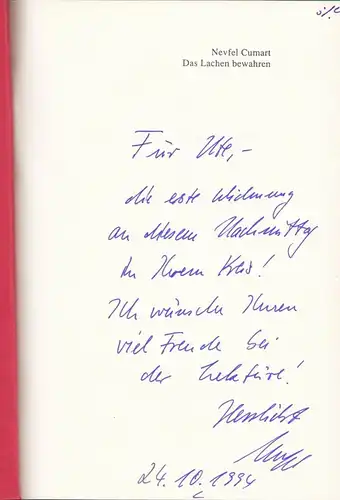 Nevfel Cumart
Das Lachen bewahren
Für Ute,-
die erste Widmung
an diesem Nachmittag
in Ihrem Kreis!
Ich wünsche Ihnen
viel Freude bei
der Lektüre!
Herzlichst
24.10.1994